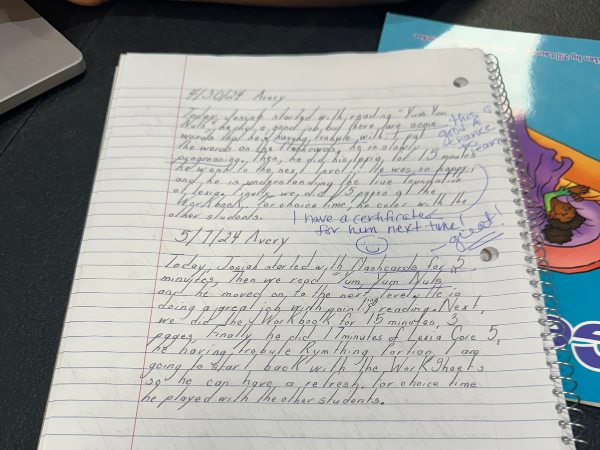 4/30/24 Avery
Today, Josiah started with reading "Yum Yum
Nuts", he did a good job, but there are some
words that he is having trobule with. I put
the words on the flashcards, he is slowly
progressing. Then, he did his for 15 minutes
he went to the next level... He was so happy,
and he is understanding the true foundation
of Lexia. Lastly, we did 3 pages of the
Workbook, for choice time he color with the
other students.
this is
great
chance
learn
I have a certificate
for him next time!
great!
5/7/24 Avery
Today, Josiah started with flashcards for 5
minutes, then we read "Yum, Yum Nuts"
and he moved on to the next level. He is
doing a great job with pointing reading. Next,
we did the Workbook for 15 minutes, 3
pages. Finally he did 17 minutes of Lexia Core 5,
he having trobule Rymthing portion I am
going to start back with the WorkSheets
so he can have a refresh, for choice time
he played with the other students.